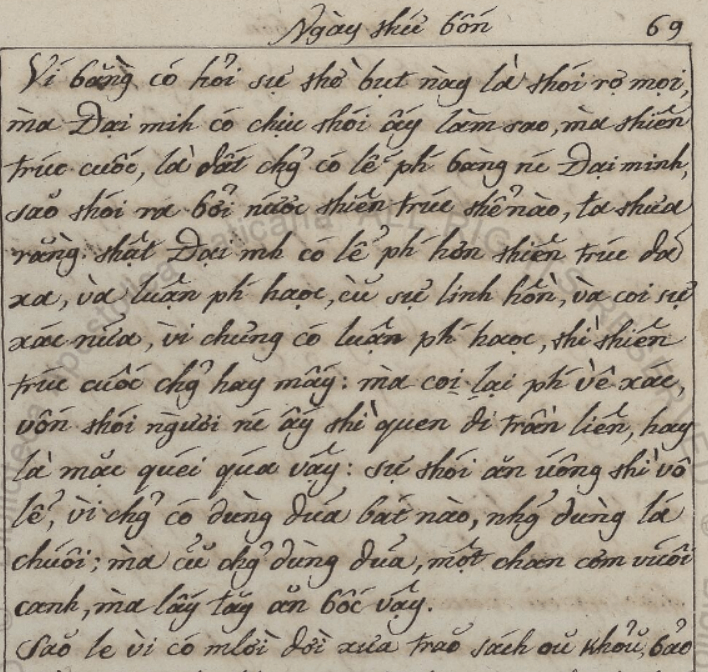 Ngày thứ bốn 69
Ví bằng có hỏi sự thờ bụt này là thói rợ mọi,
mà Đại minh có chịu thói ấy làm sao, mà thiên
trúc cuốc, là đất chg̉ có lễ phí bàng nc Đại minh,
saõ thói ra bởi nước thiên trúc thể nào, ta thưa
rằng: thật Đại mh có lễ phí hơn thiên trúc đã
xa, và luận phí haọc, cũ sự linh hồn, và coi sự
xác nữa, vì chưng có luận phí haọc, thì thiên
trúc cuốc chg̉ hay mấy: mà coi lại phí vê xác,
vốn thói người nc ấy thì quen đi trần liên, hay
là mặc quéi qúa vậy: sự thói ăn uống thì vô
lễ, vì chg̉ có dùng đũa bát nào, nhg̃ dùng lá
chuối; mà cũ chg̉ dùng đũa, một chan cơm vuối
canh, mà lấy tay ăn bốc vậy.
Saõ le vì có mlời đời xưa traõ sách oũ Khoũ, bảo